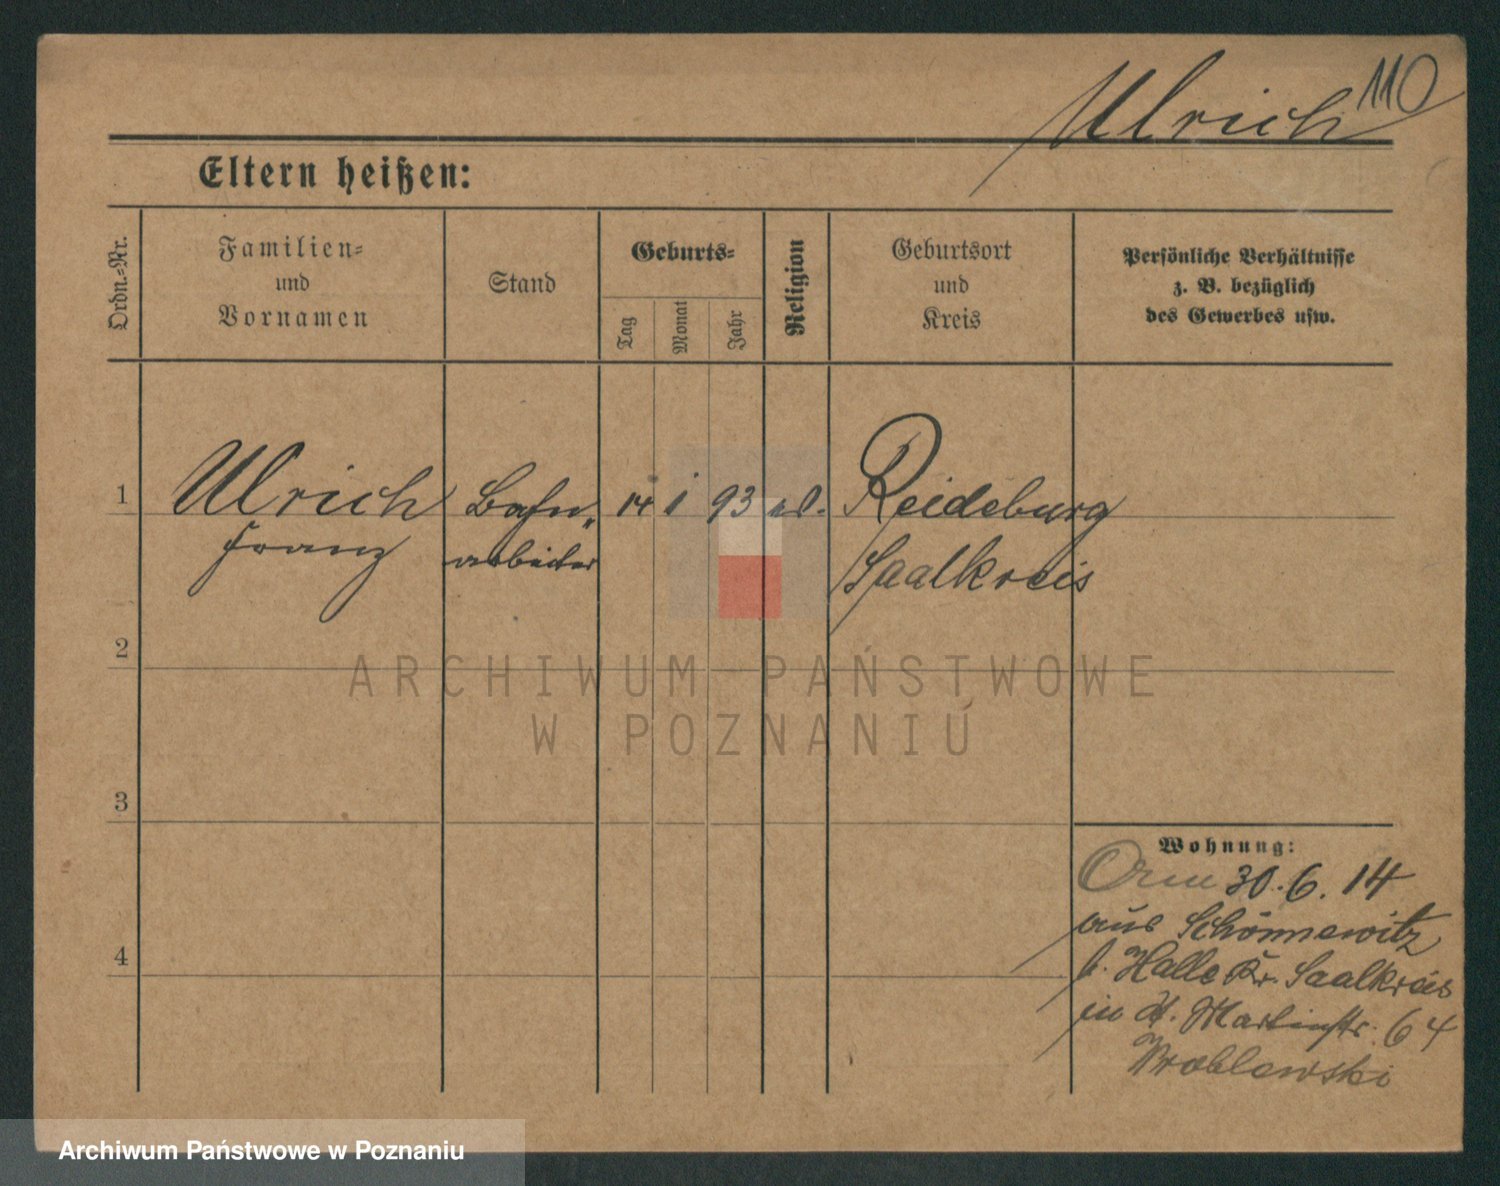 110
Ulrich
Eltern heißen:
Ordn.-Nr.
Familien-
und
Vornamen
Stand
Geburts-
Tag
Monat
Jahr
Religion
Geburtsort
und
Kreis
Persönliche Verhältnisse
z. B. bezüglich
des Gewerbes usw.
1 Ulrich Bahn- 14 1 93 Reideburg
Franz arbeiter Saalkreis
2
ARCHIWUM PAŃSTWOWE
W POZNANIU
3
Wohnung:
30.6.14
aus Schönnewitz
b. Halle Kr. Saalkreis
in St. Martinstr. 64
Wroblewski
4
Archiwum Państwowe w Poznaniu